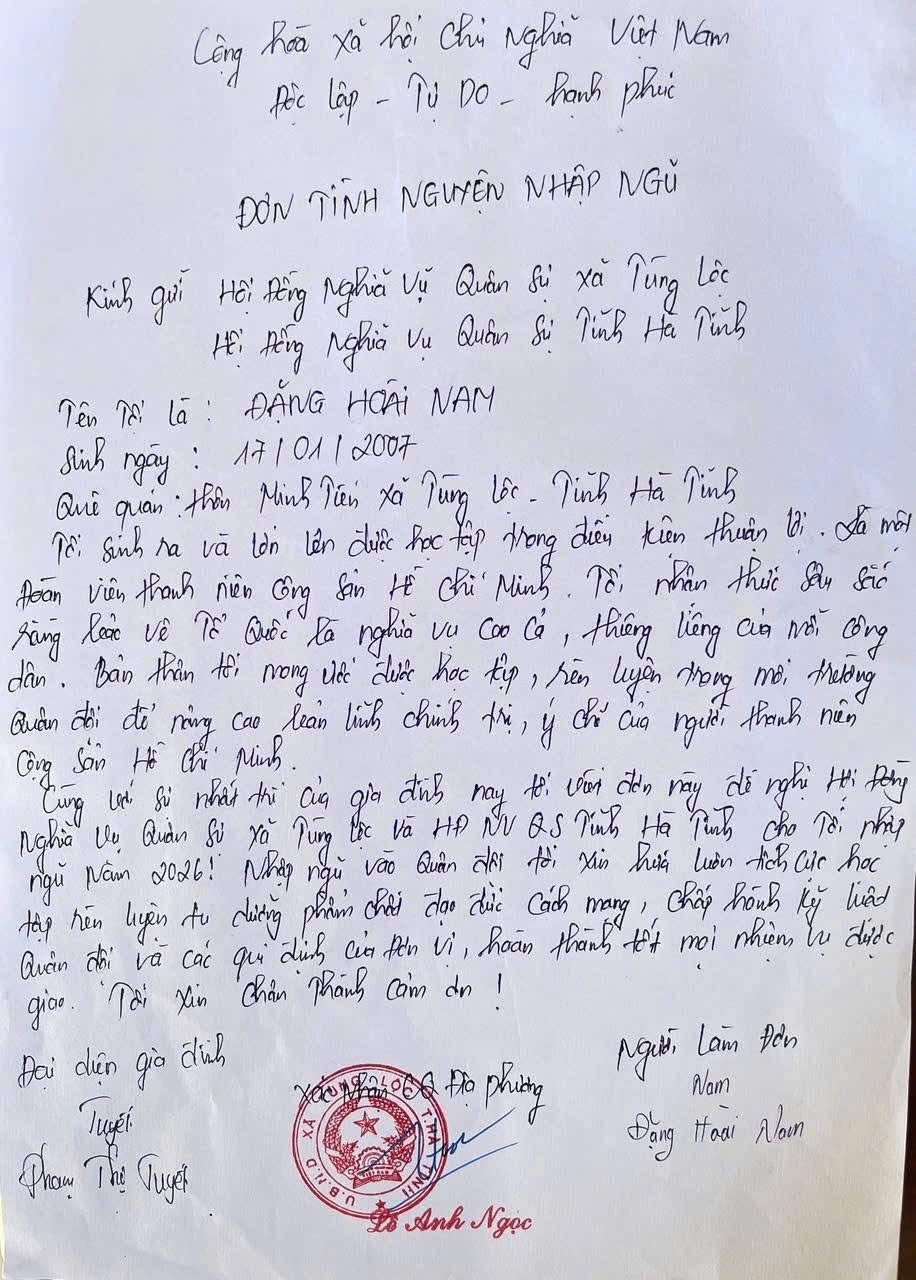 Cộng hòa xã hội Chủ Nghĩa Việt Nam
Độc lập - Tự Do - hạnh phúc
ĐƠN TÌNH NGUYỆN NHẬP NGŨ
Kính gửi Hội Đồng Nghĩa Vụ Quân Sự xã Tùng Lộc
Hội Đồng Nghĩa Vụ Quân Sự Tỉnh Hà Tĩnh
Tên Tôi là : ĐẶNG HOÀI NAM
Sinh ngày : 17/01/2007
Quê quán : thôn Minh Tiến xã Tùng Lộc - Tỉnh Hà Tĩnh
Tôi sinh ra và lớn lên được học tập trong điều kiện thuận lợi. Là một
Đoàn viên thanh niên Cộng Sản Hồ Chí Minh. Tôi nhận thức sâu sắc
rằng bảo vệ Tổ Quốc là nghĩa vụ cao cả, thiêng liêng của mỗi công
dân. Bản thân tôi mong ước được học tập, rèn luyện trong môi trường
Quân đội để nâng cao bản lĩnh chính trị, ý chí của người thanh niên
Cộng Sản Hồ Chí Minh.
Cùng với sự nhất trí của gia đình nay tôi viết đơn này đề nghị Hội Đồng
Nghĩa Vụ Quân Sự xã Tùng Lộc và HĐ NV QS Tỉnh Hà Tĩnh cho Tôi nhập
ngũ Năm 2026! Nhập ngũ vào Quân đội tôi xin hứa luôn tích cực học
tập rèn luyện tu dưỡng phẩm chất đạo đức cách mạng, chấp hành kỷ luật
Quân đội và các qui định của Đơn vị, hoàn thành tốt mọi nhiệm vụ được
giao. Tôi xin chân thành cảm ơn !
Đại diện gia đình
Xác Nhận CQ Địa phương
Người Làm Đơn
Tuyết
Nam
Phạm Thị Tuyết
Đặng Hoài Nam
U.B.N.D XÃ TÙNG LỘC T.HÀ TĨNH
Lê Anh Ngọc